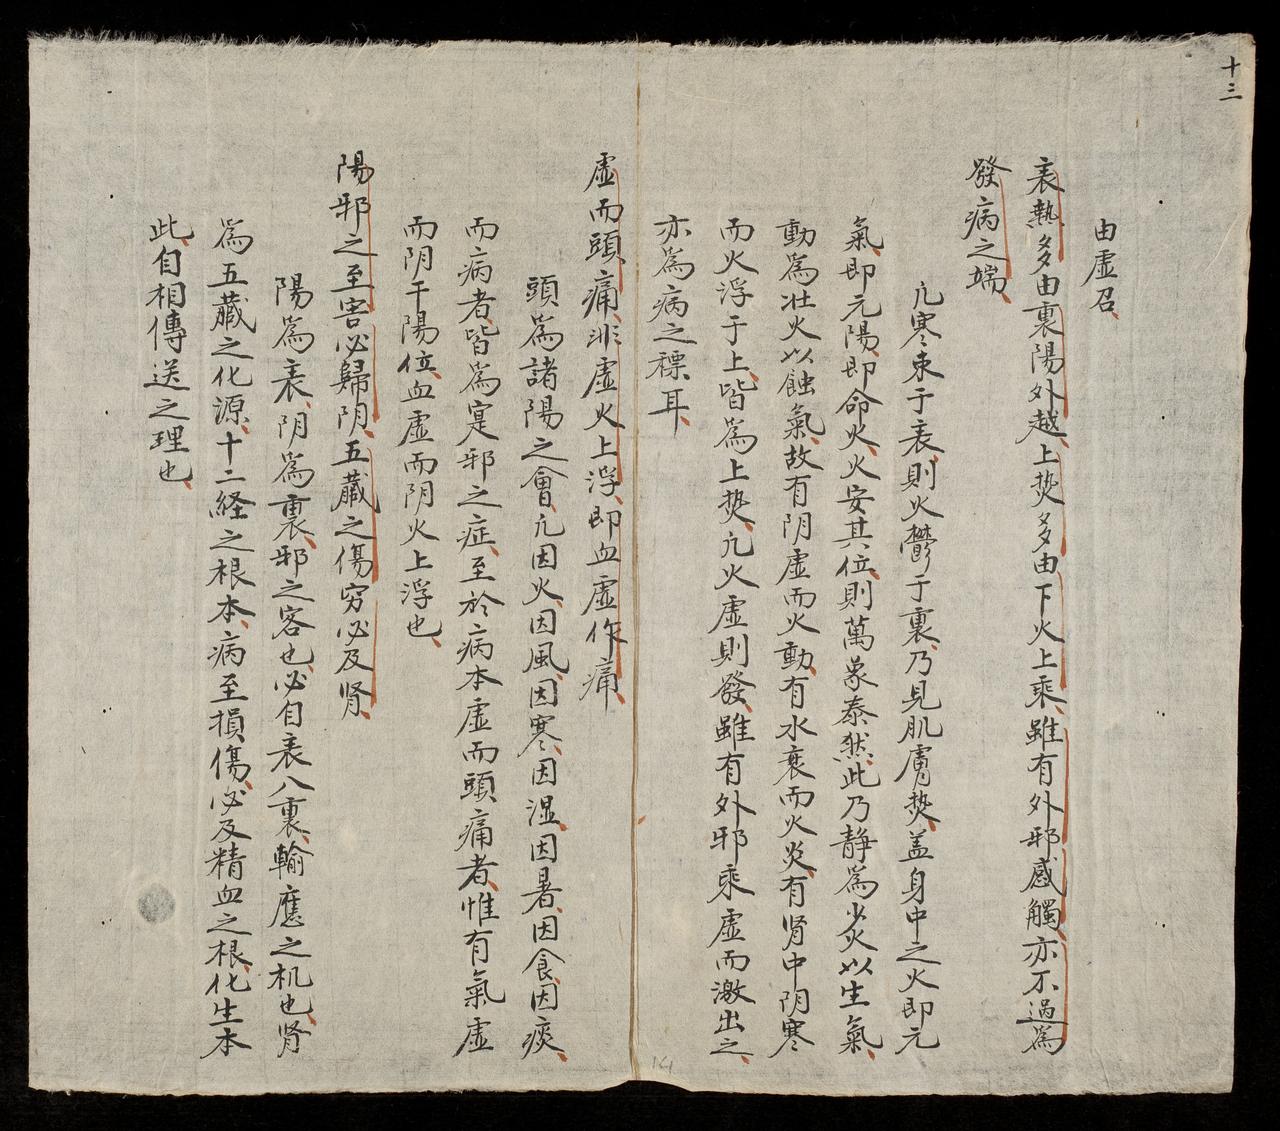 十三
由虛召
表熱多由裏陽外越上焚多由下火上乘雖有外邪感觸亦不過爲
發病之端
凢寒束于表則火鬱于裏乃見肌膚焚盖身中之火即元
氣即元陽即命火火安其位則萬象泰然此乃静爲少火以生氣
動爲壮火以蝕氣故有阴虛而火動有水衰而火炎有肾中阴寒
而火浮于上皆爲上焚凢火虛則發雖有外邪乘虛而激出之
亦爲病之標耳
虛而頭痛非虛火上浮即血虛作痛
頭爲諸陽之會凢因火因風因寒因湿因暑因食因痰
而病者皆爲寔邪之症至於病本虛而頭痛者惟有氣虛
而阴干陽位血虛而阴火上浮也
陽邪之至害必歸阴五藏之傷穷必及肾
陽爲表阴爲裏邪之客也必自表入裏輸應之机也肾
爲五藏之化源十二経之根本病至損傷必及精血之根化生本
此自相傳送之理也
161